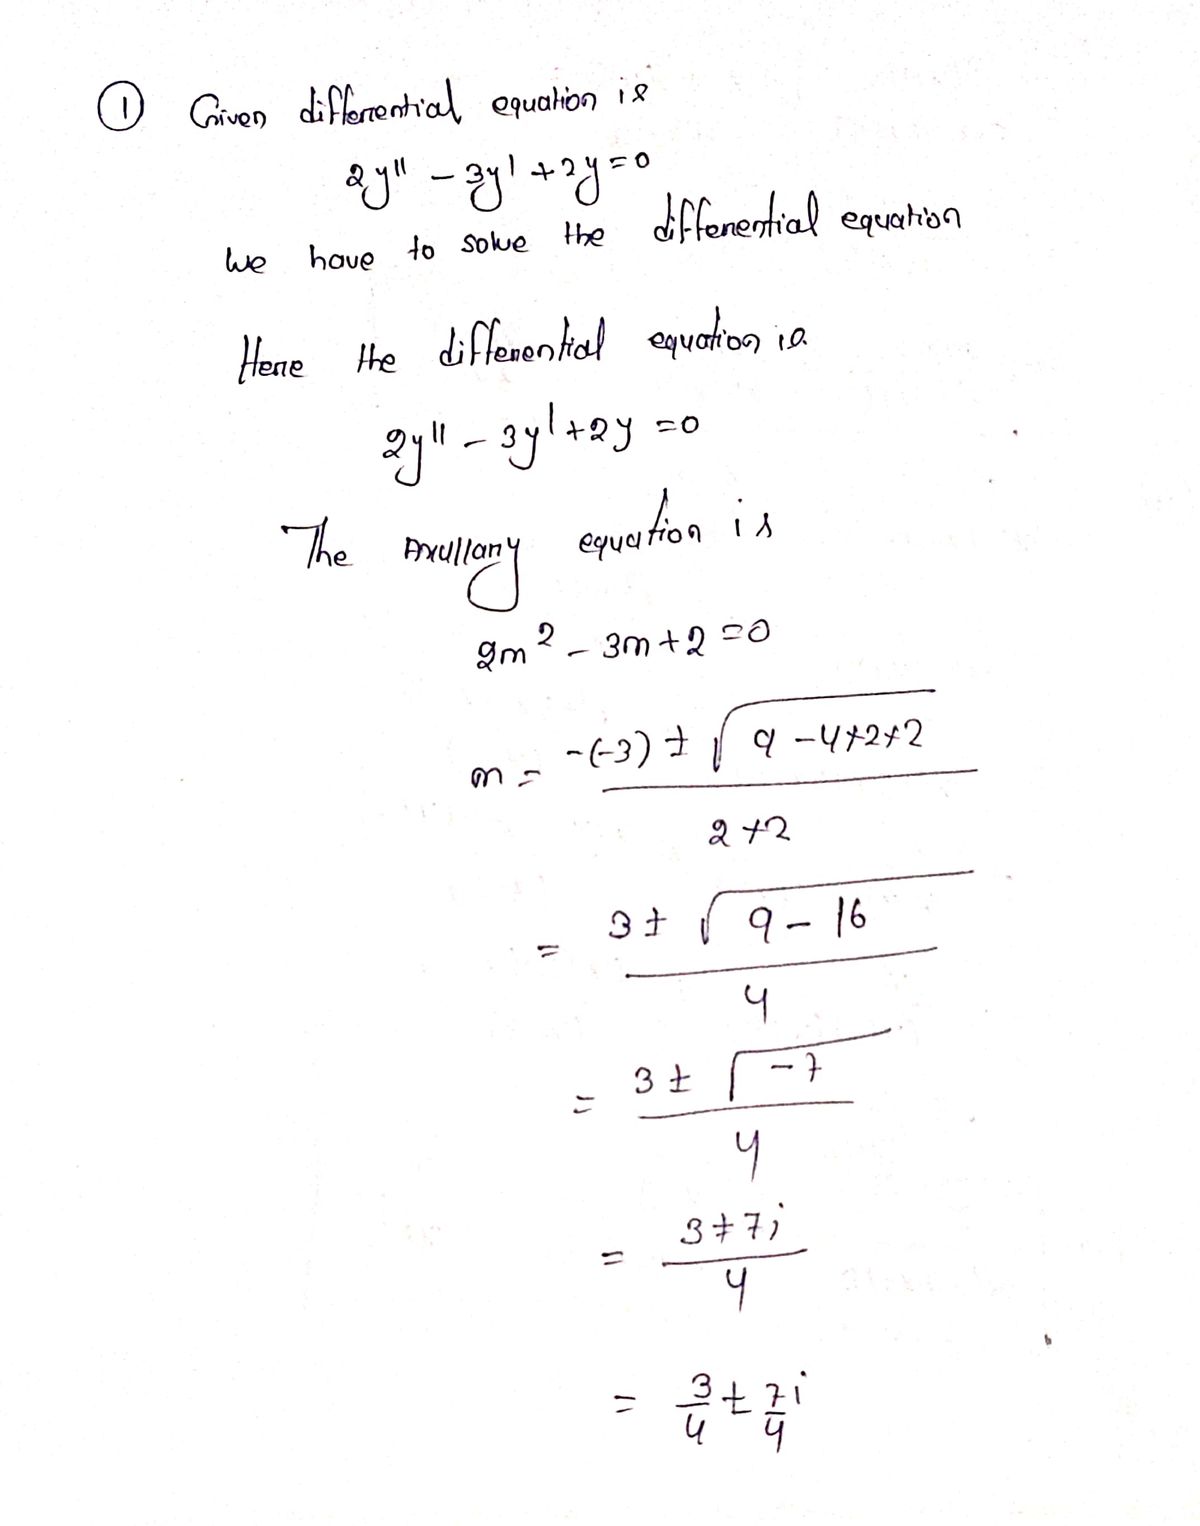 ① Given differential equation is
2y'' - 3y' + 2y = 0
We have to solve the differential equation
Here the differential equation is
2y'' - 3y' + 2y = 0
The Axullary equation is
2m² - 3m + 2 = 0
m = (-(-3) ± √(9 - 4×2×2)) / (2×2)
= (3 ± √(9 - 16)) / 4
= (3 ± √(-7)) / 4
= (3 ± 7i) / 4
= 3/4 ± 7/4 i